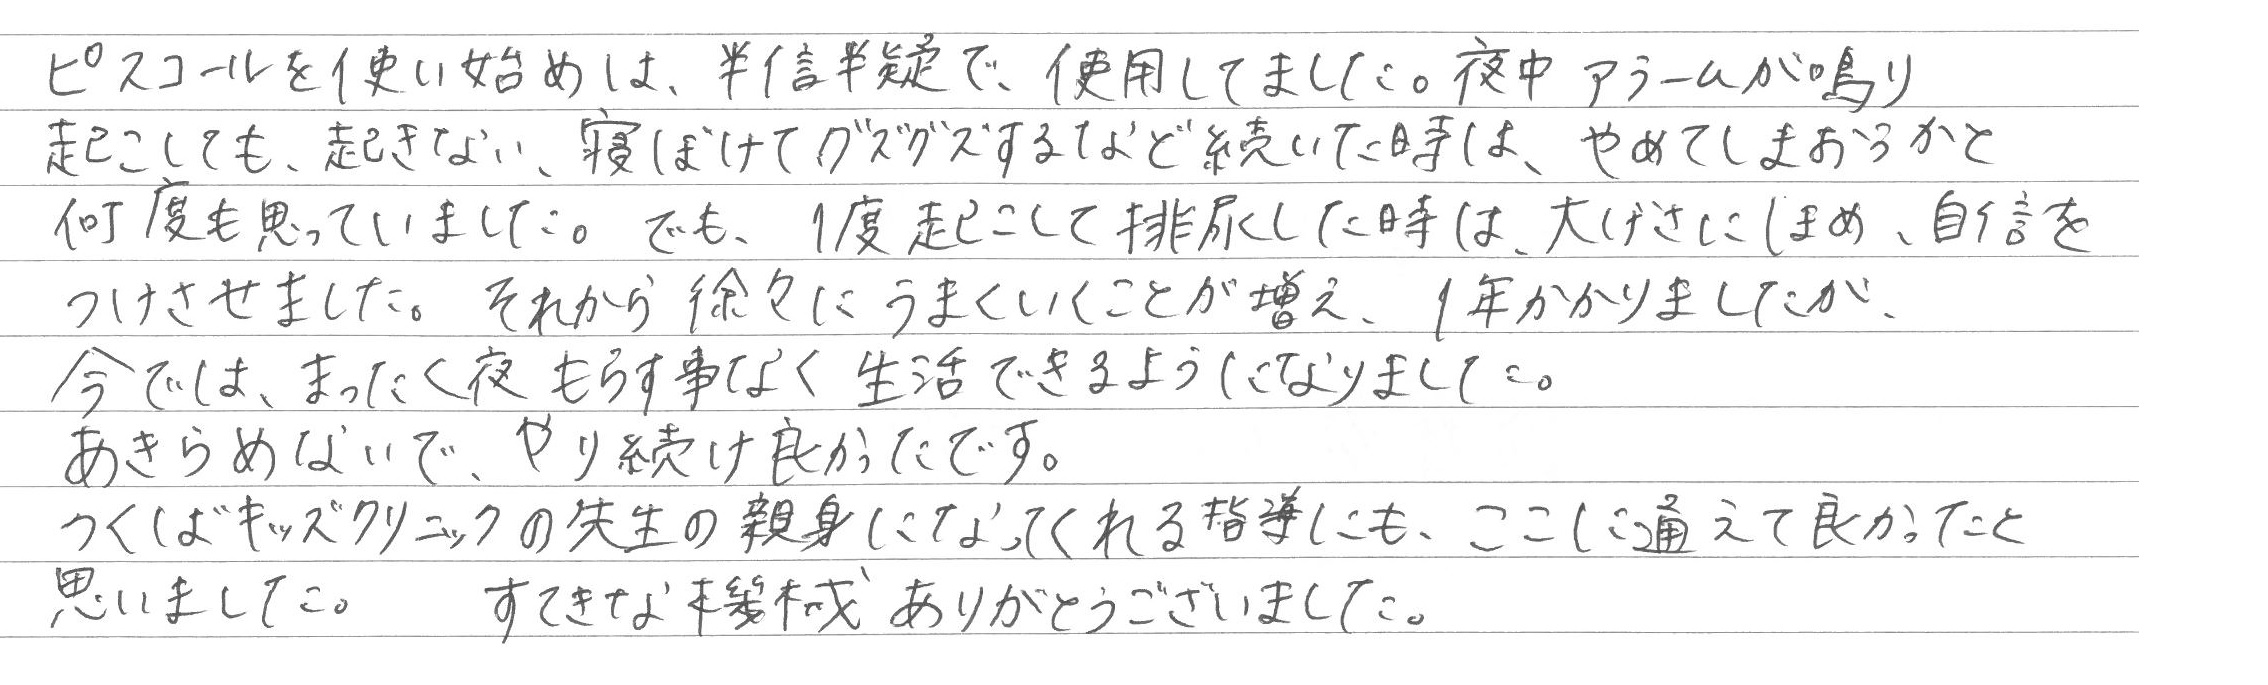 ピスコールを使い始めは、半信半疑で、使用してました。夜中アラームが鳴り
起こしても、起きない、寝ぼけてグズグズするなど続いた時は、やめてしまおうかと
何度も思っていました。でも、1度起こして排尿した時は、大げさにほめ、自信を
つけさせました。それから徐々にうまくいくことが増え、1年かかりましたが、
今では、まったく夜もらす事なく生活できるようになりました。
あきらめないで、やり続け良かったです。
つくばキッズクリニックの先生の親身になってくれる指導にも、ここに通えて良かったと
思いました。 すてきな機械ありがとうございました。